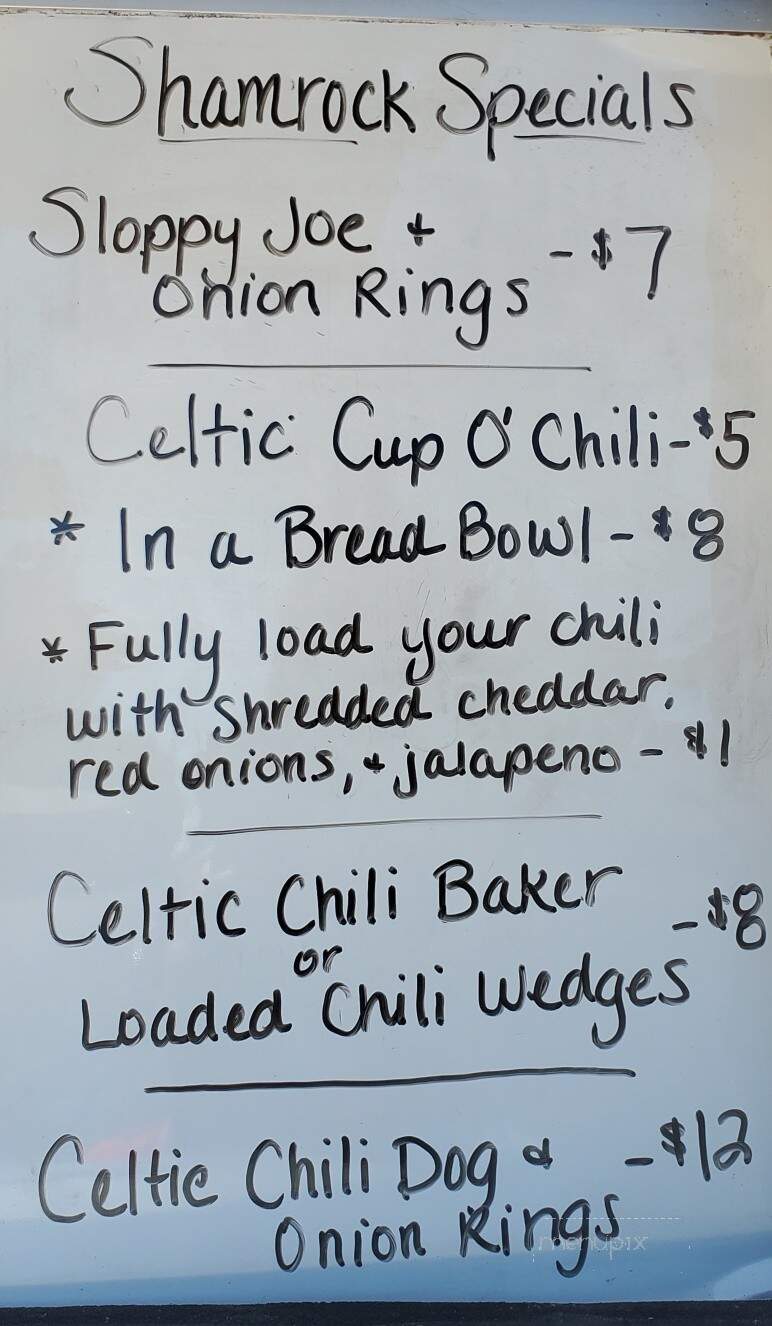 Shamrock Specials
Sloppy Joe +
Onion Rings - $7
Celtic Cup O' Chili - $5
* In a Bread Bowl - $8
* Fully load your chili
with shredded cheddar,
red onions, + jalapeno - $1
Celtic Chili Baker
or - $8
Loaded Chili Wedges
Celtic Chili Dog & - $12
Onion Rings
menupix